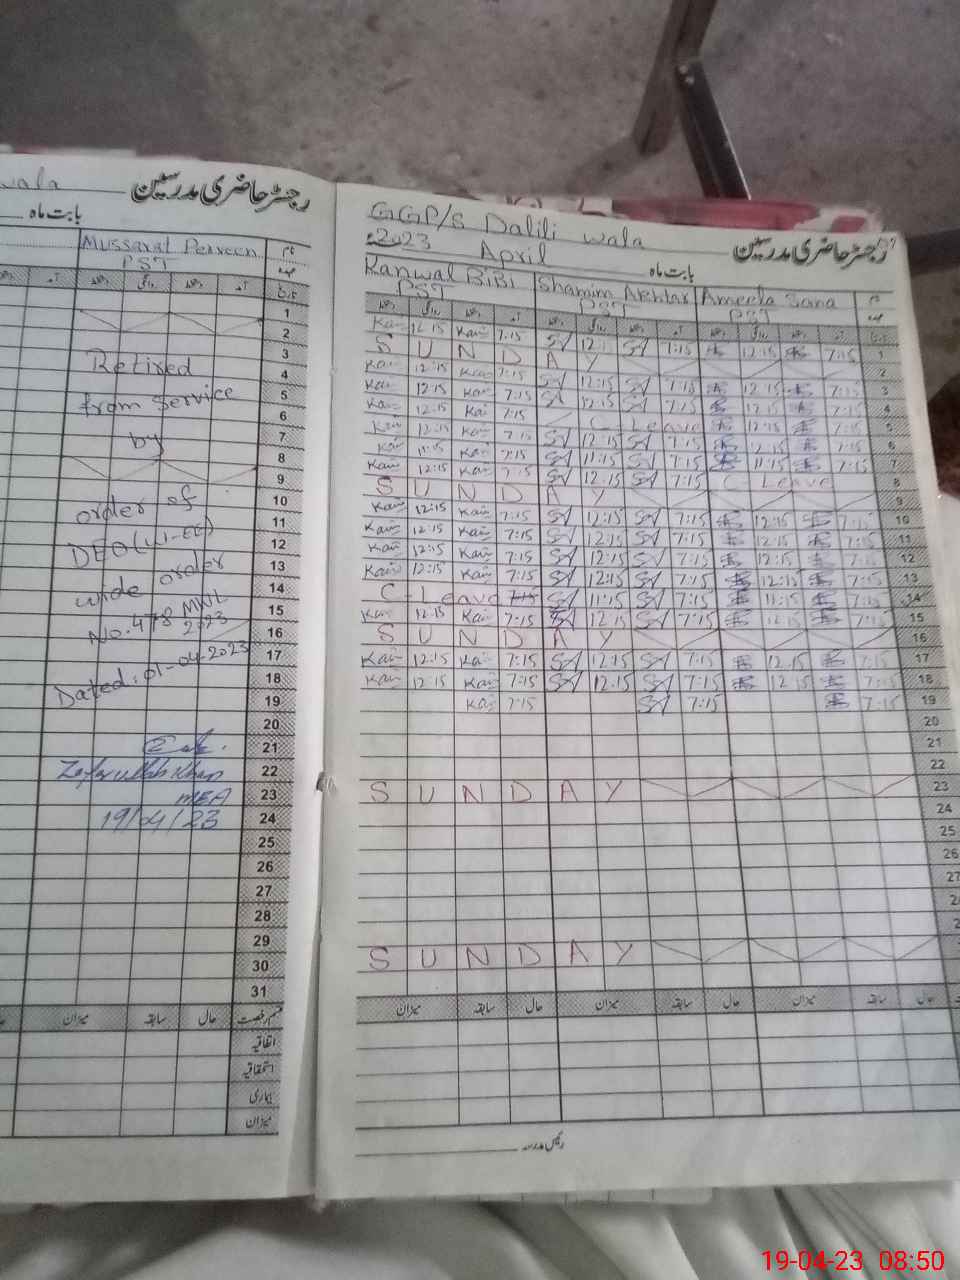 wala
رجسٹر حاضری مدرسین
بابت ماہ
Mussarat Perveen
نام
PST
عہدہ
آمد
روانگی
آمد
تاریخ
1
2
3
Retired
4
from service
5
6
by
7
8
9
order of
10
11
DEO (W-EE)
12
wide order
13
14
No. 478 MWL
2023
15
16
Dated: 01-04-2023
17
18
19
20
21
Zafarullah Khan
22
MEA
23
19/04/23
24
25
26
27
28
29
30
31
میزان
سابقہ
حال
قسم رخصت
اتفاقیہ
استحقاقیہ
بیماری
میزان
GGP/S Dalili wala
رجسٹر حاضری مدرسین
2023
April
بابت ماہ
Kanwal BiBi
Shamim Akhtar
Ameela Sana
نام
PST
PST
PST
عہدہ
روانگی
آمد
روانگی
آمد
روانگی
آمد
تاریخ
Kan 12:15 Kan 7:15 SA 12:15 SA 7:15 12:15 7:15 1
S U N D A Y 2
Kan 12:15 Kan 7:15 SA 12:15 SA 7:15 12:15 7:15 3
Kan 12:15 Kan 7:15 SA 12:15 SA 7:15 12:15 7:15 4
Kan 12:15 Kan 7:15 C-Leave 12:15 7:15 5
Kan 12:15 Kan 7:15 SA 12:15 SA 7:15 12:15 7:15 6
Kan 11:15 Kan 7:15 SA 11:15 SA 7:15 11:15 7:15 7
Kan 12:15 Kan 7:15 SA 12:15 SA 7:15 C-Leave 8
S U N D A Y 9
Kan 12:15 Kan 7:15 SA 12:15 SA 7:15 12:15 7:15 10
Kan 12:15 Kan 7:15 SA 12:15 SA 7:15 12:15 7:15 11
Kan 12:15 Kan 7:15 SA 12:15 SA 7:15 12:15 7:15 12
Kan 12:15 Kan 7:15 SA 12:15 SA 7:15 12:15 7:15 13
C-Leave 7:15 SA 11:15 SA 7:15 11:15 7:15 14
Kan 12:15 Kan 7:15 SA 12:15 SA 7:15 12:15 7:15 15
S U N D A Y 16
Kan 12:15 Kan 7:15 SA 12:15 SA 7:15 12:15 7:15 17
Kan 12:15 Kan 7:15 SA 12:15 SA 7:15 12:15 7:15 18
Kan 7:15 SA 7:15 7:15 19
20
21
22
S U N D A Y 23
24
25
26
27
S U N D A Y
میزان
سابقہ
حال
میزان
سابقہ
حال
میزان
سابقہ
حال
رئیس مدرسہ
19-04-23 08:50